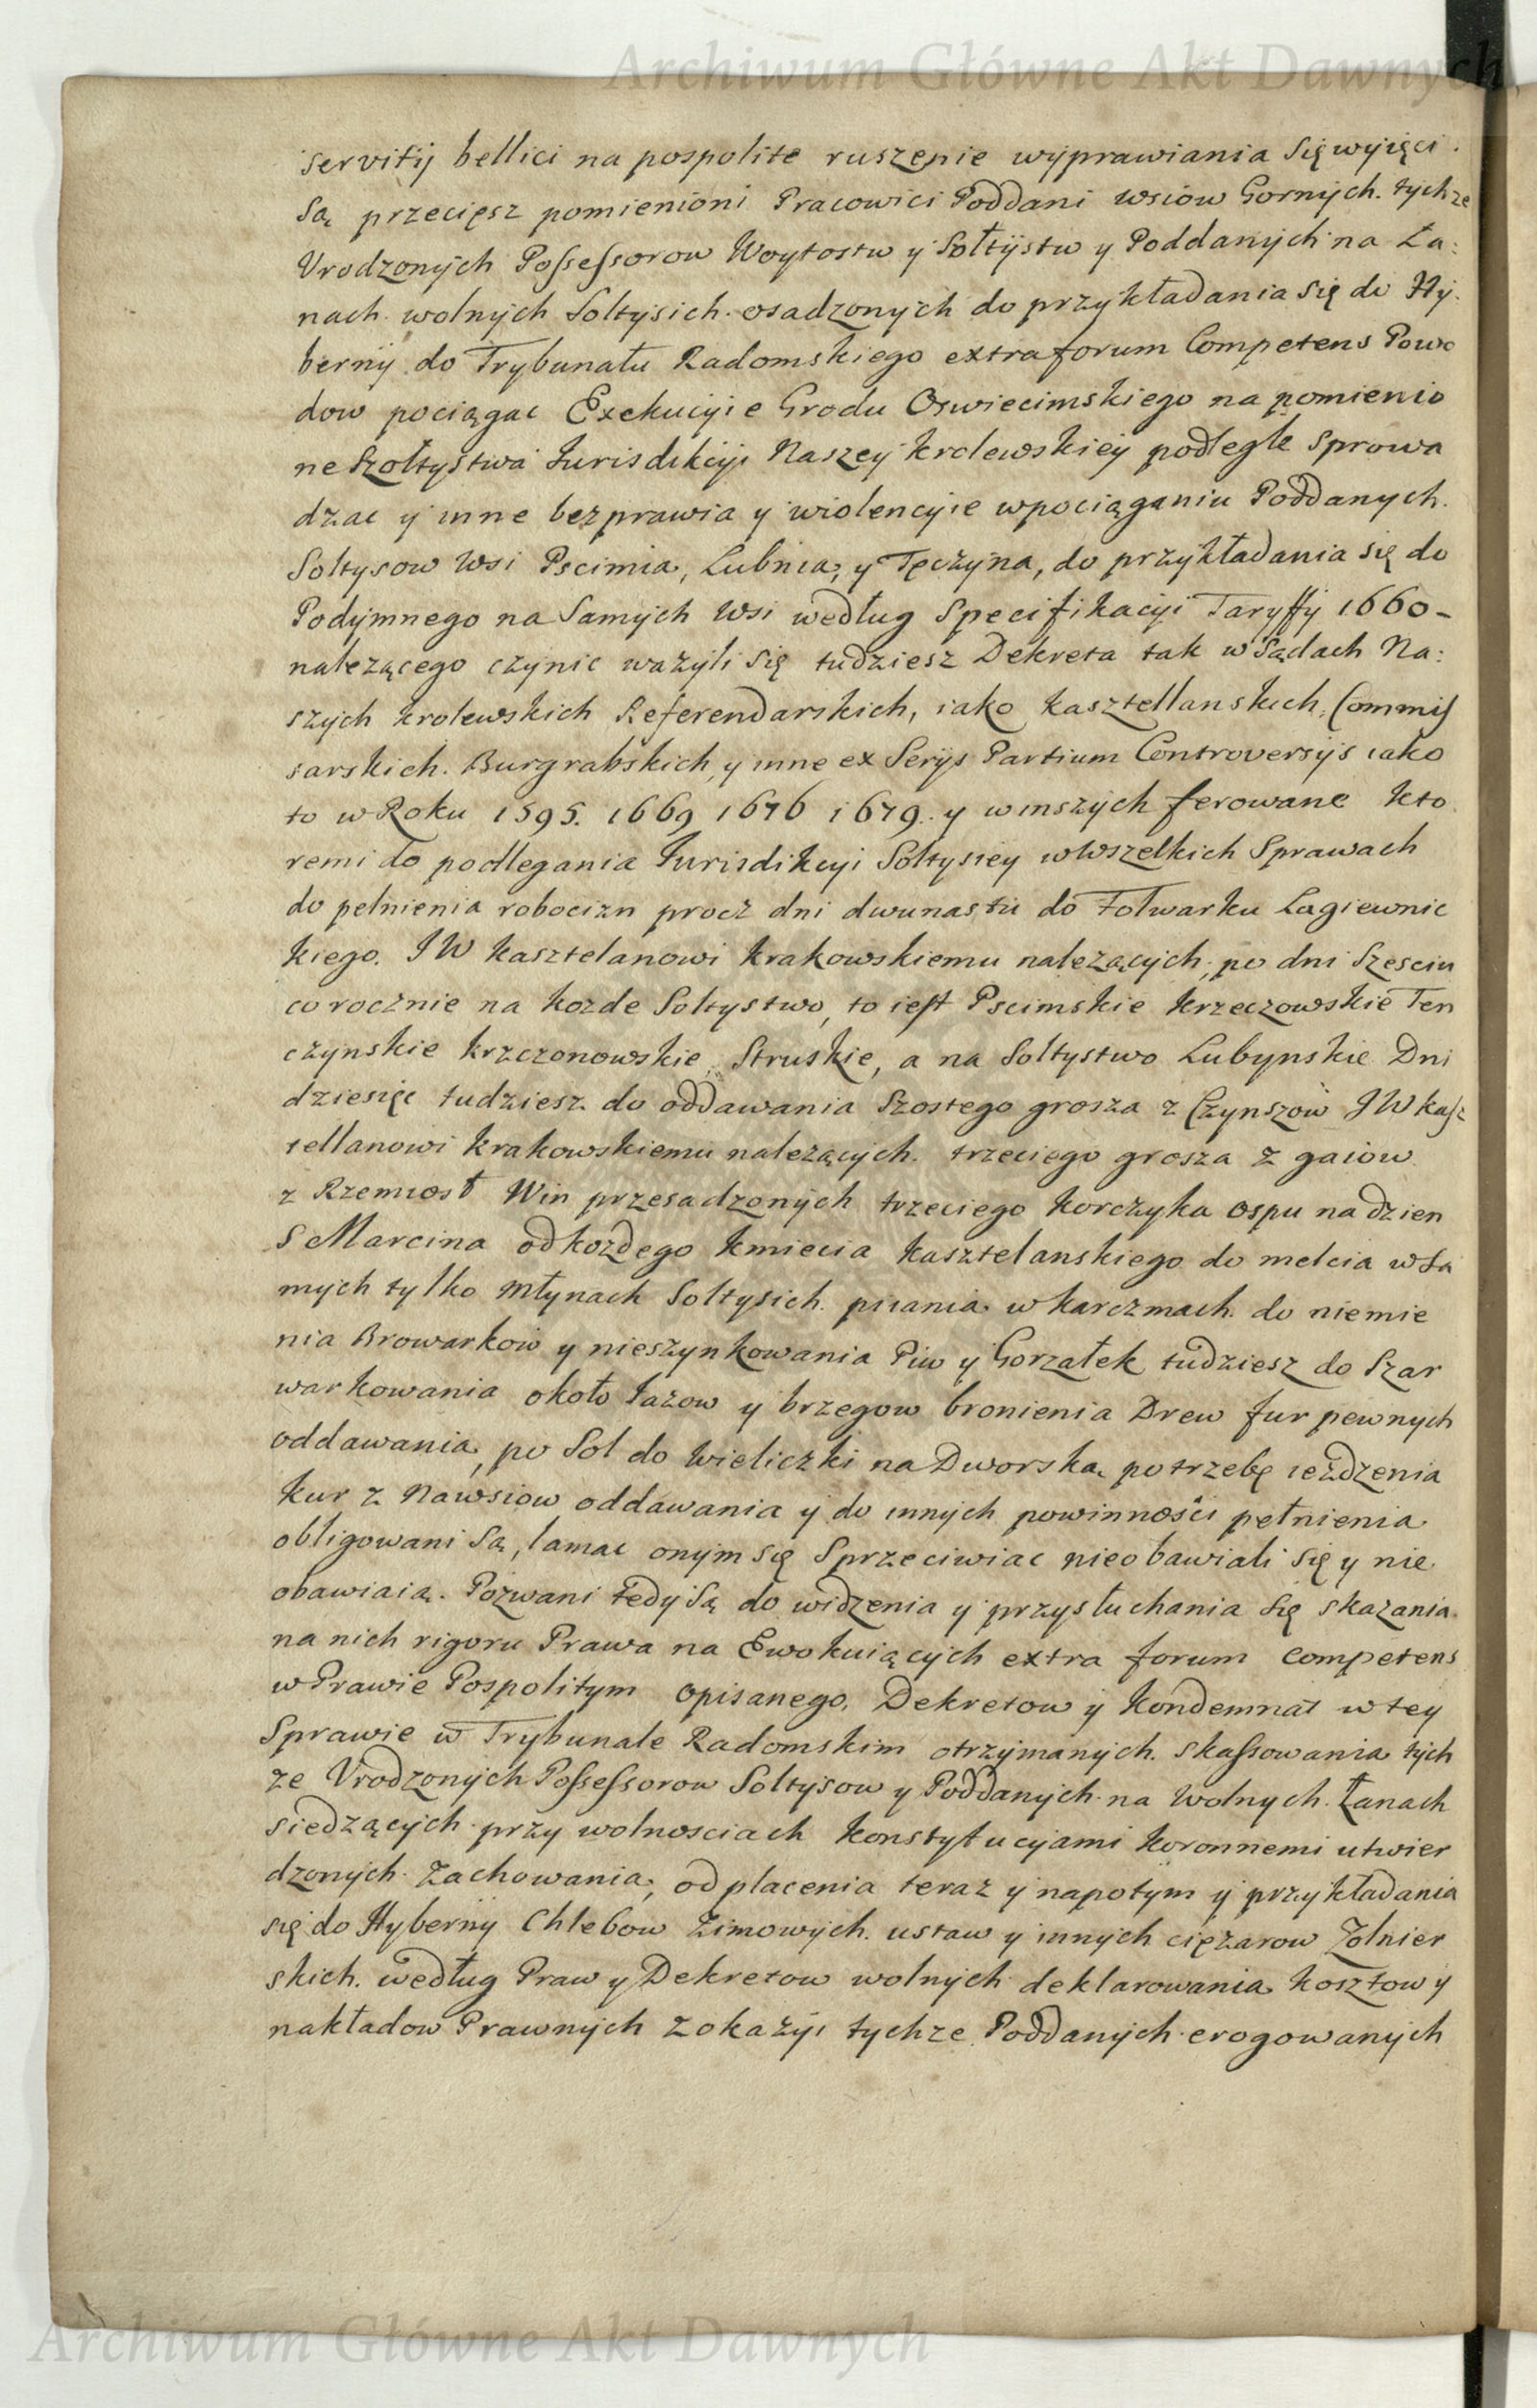 Archiwum Główne Akt Dawnych
servitij bellici na pospolite ruszenie wyprawiania się wyięci
są przecięsz pomienioni Pracowici Poddani wsiow Gornych. tychze
Vrodzonych Possessorow Woytostw y Sołtystw y Poddanych na Ła:
nach wolnych Soltysich osadzonych do przykładania się do Hy.
berny do Trybunału Radomskiego extra forum Competens Powo
dow pociągac Exekucyie Grodu Oswiecimskiego na pomienio
ne Szołtystwa Jurisdikcyi Naszey krolewskiey podległe Sprowa
dzac y inne bezprawia y wiolencyie w pociąganiu Poddanych.
Soltysow Wsi Pscimia, Lubnia, y Tęczyna, do przykładania się do
Podymnego na Samych Wsi według Specifikacyi Taryffy 1660 -
nalezącego czynic wazyli się tudziesz Dekreta tak w Sądach Na:
szych krolewskich Referendarskich, iako kasztellanskich, Commis
sarskich. Burgrabskich, y inne ex Serys Partium Controversys iako
to w Roku 1595. 1669 1676 1679. y w inszych ferowane kto
remi do podlegania Jurisdikcyi Sołtysiey w Wszelkich Sprawach
do pelnienia robocizn procz dni dwunastu do Folwarku Lagiewnic
kiego. JW kasztelanowi krakowskiemu nalezących, po dni Szesciu
co rocznie na kozde Soltystwo, to iest Pscimskie krzeczowskie Ten
czynskie krzczonowskie, Struskie, a na Soltystwo Lubynskie Dni
dziesięc tudziesz do oddawania Szostego grosza z Czynszow JW kasz
tellanowi krakowskiemu nalezących. trzeciego grosza z gaiow
z Rzemiosł Win przesadzonych trzeciego korczyka ospu na dzien
S Marcina od kozdego kmiecia kasztelanskiego do melcia w sa
mych tylko młynach Soltysich. picania w karczmach. do niemie
nia Browarkow y nieszynkowania Piw y Gorzałek tudziesz do Szar
warkowania około Jazow y brzegow bronienia Drew fur pewnych
oddawania, po Sol do Wieliczki na Dworską potrzebę iezdzenia
kur z Nawsiow oddawania y do innych powinności pełnienia
obligowani Są, lamac onym się Sprzeciwiac nieobawiali się y nie
obawiaią. Pozwani tedy Są do widzenia y przysłuchania się skazania
na nich rigoru Prawa na Ewokuiących extra forum competens
w Prawie Pospolitym opisanego, Dekretow y kondemnat w tey
Sprawie w Trybunale Radomskim otrzymanych. skassowania tych
ze Vrodzonych Possessorow Soltysow y Poddanych na Wolnych Łanach
siedzących przy wolnosciach konstytucyami koronnemi utwier
dzonych zachowania, od placenia teraz y napotym y przykładania
się do Hyberny Chlebow zimowych. ustaw y innych cięzarow Zolnier
skich. według Praw y Dekretow wolnych deklarowania kosztow y
nakładow Prawnych z okazyi tychze Poddanych erogowanych
Archiwum Główne Akt Dawnych